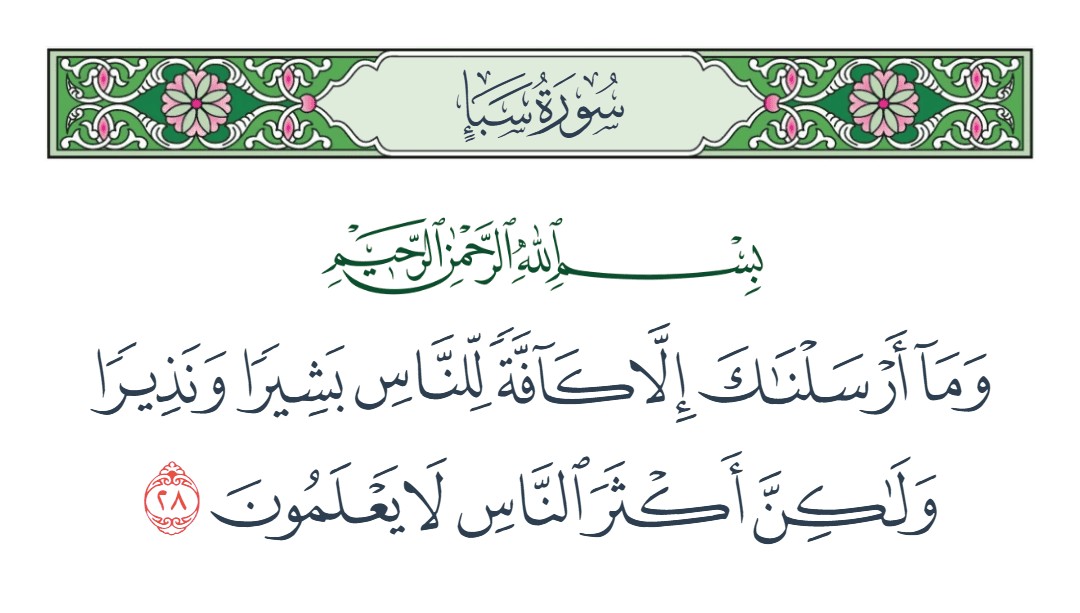 سُورَةُ سَبَإٍ
بِسْمِ ٱللَّهِ ٱلرَّحْمَٰنِ ٱلرَّحِيمِ
وَمَآ أَرْسَلْنَٰكَ إِلَّا كَآفَّةً لِّلنَّاسِ بَشِيرًا وَنَذِيرًا
وَلَٰكِنَّ أَكْثَرَ ٱلنَّاسِ لَا يَعْلَمُونَ ٢٨